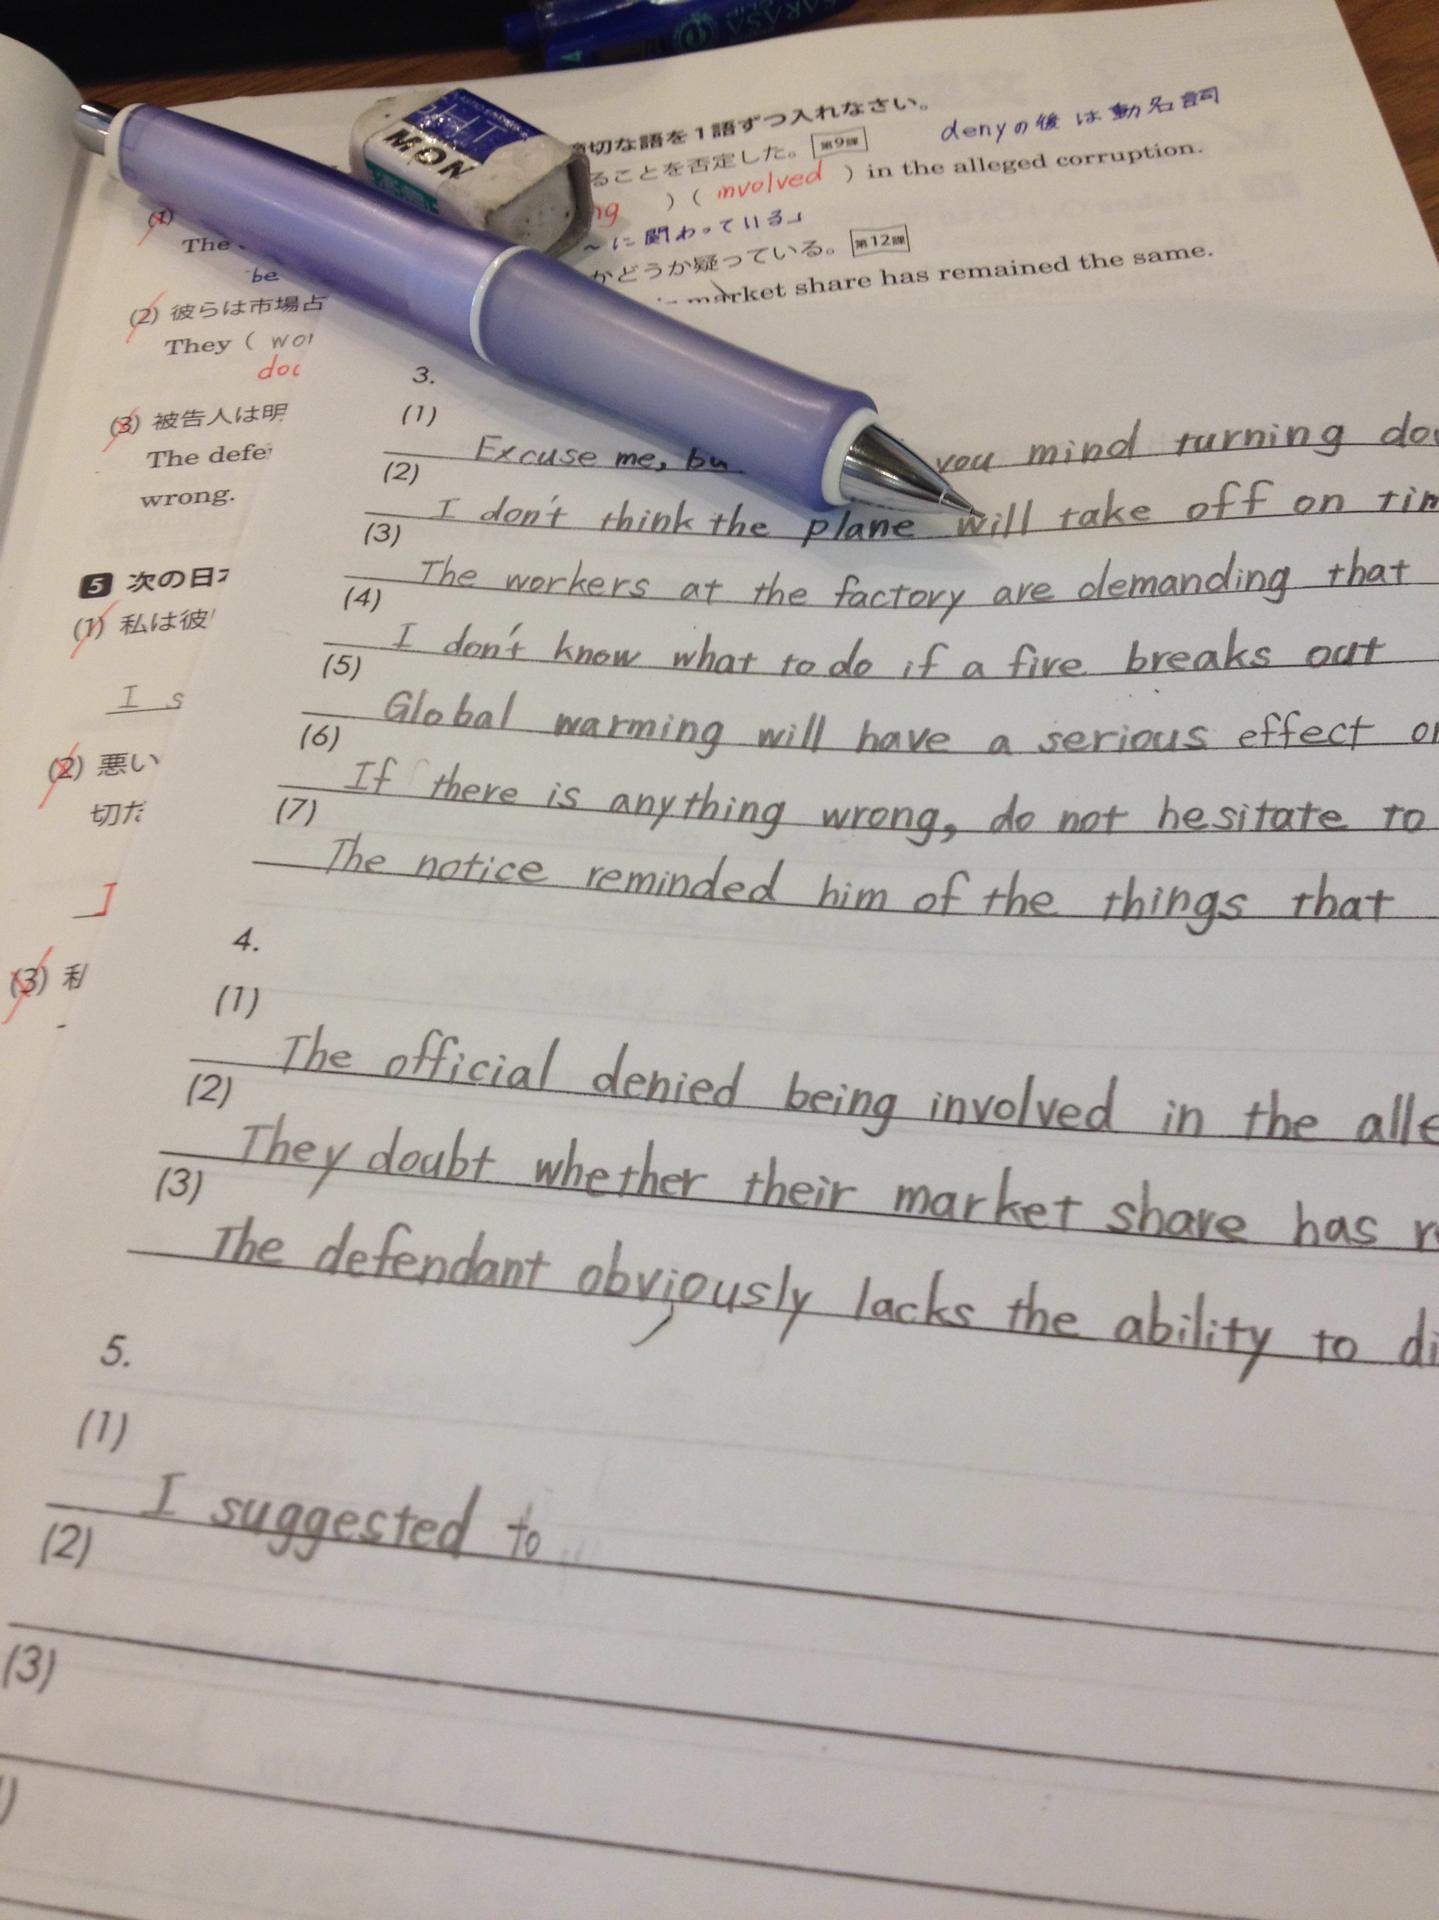 SARASA
MONO
適切な語を1語ずつ入れなさい。
denyの後は動名詞
ることを否定した。 第9課
(1)
ng ) ( involved ) in the alleged corruption.
The
be
~に関わっている」
(2) 彼らは市場占
かどうか疑っている。 第12課
They ( wo
market share has remained the same.
dou
(3) 被告人は明
The defe
wrong.
5 次の日本
(1) 私は彼
I s
(2) 悪い
切だ
I
(3) 私
3.
(1)
Excuse me, bu you mind turning do
(2)
I don't think the plane will take off on tim
(3)
The workers at the factory are demanding that
(4)
I don't know what to do if a fire breaks out
(5)
Global warming will have a serious effect on
(6)
If there is anything wrong, do not hesitate to
(7)
The notice reminded him of the things that
4.
(1)
The official denied being involved in the alle
(2)
They doubt whether their market share has re
(3)
The defendant obviously lacks the ability to di
5.
(1)
I suggested to
(2)
(3)